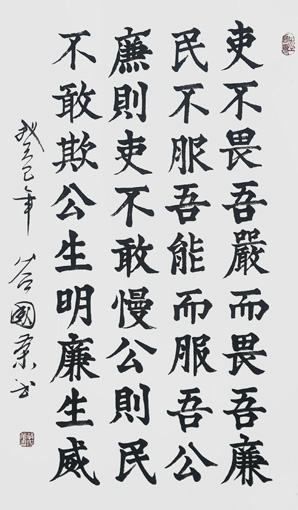 吏不畏吾嚴而畏吾廉
民不服吾能而服吾公
廉則吏不敢慢公則民
不敢欺公生明廉生威
巳年 國